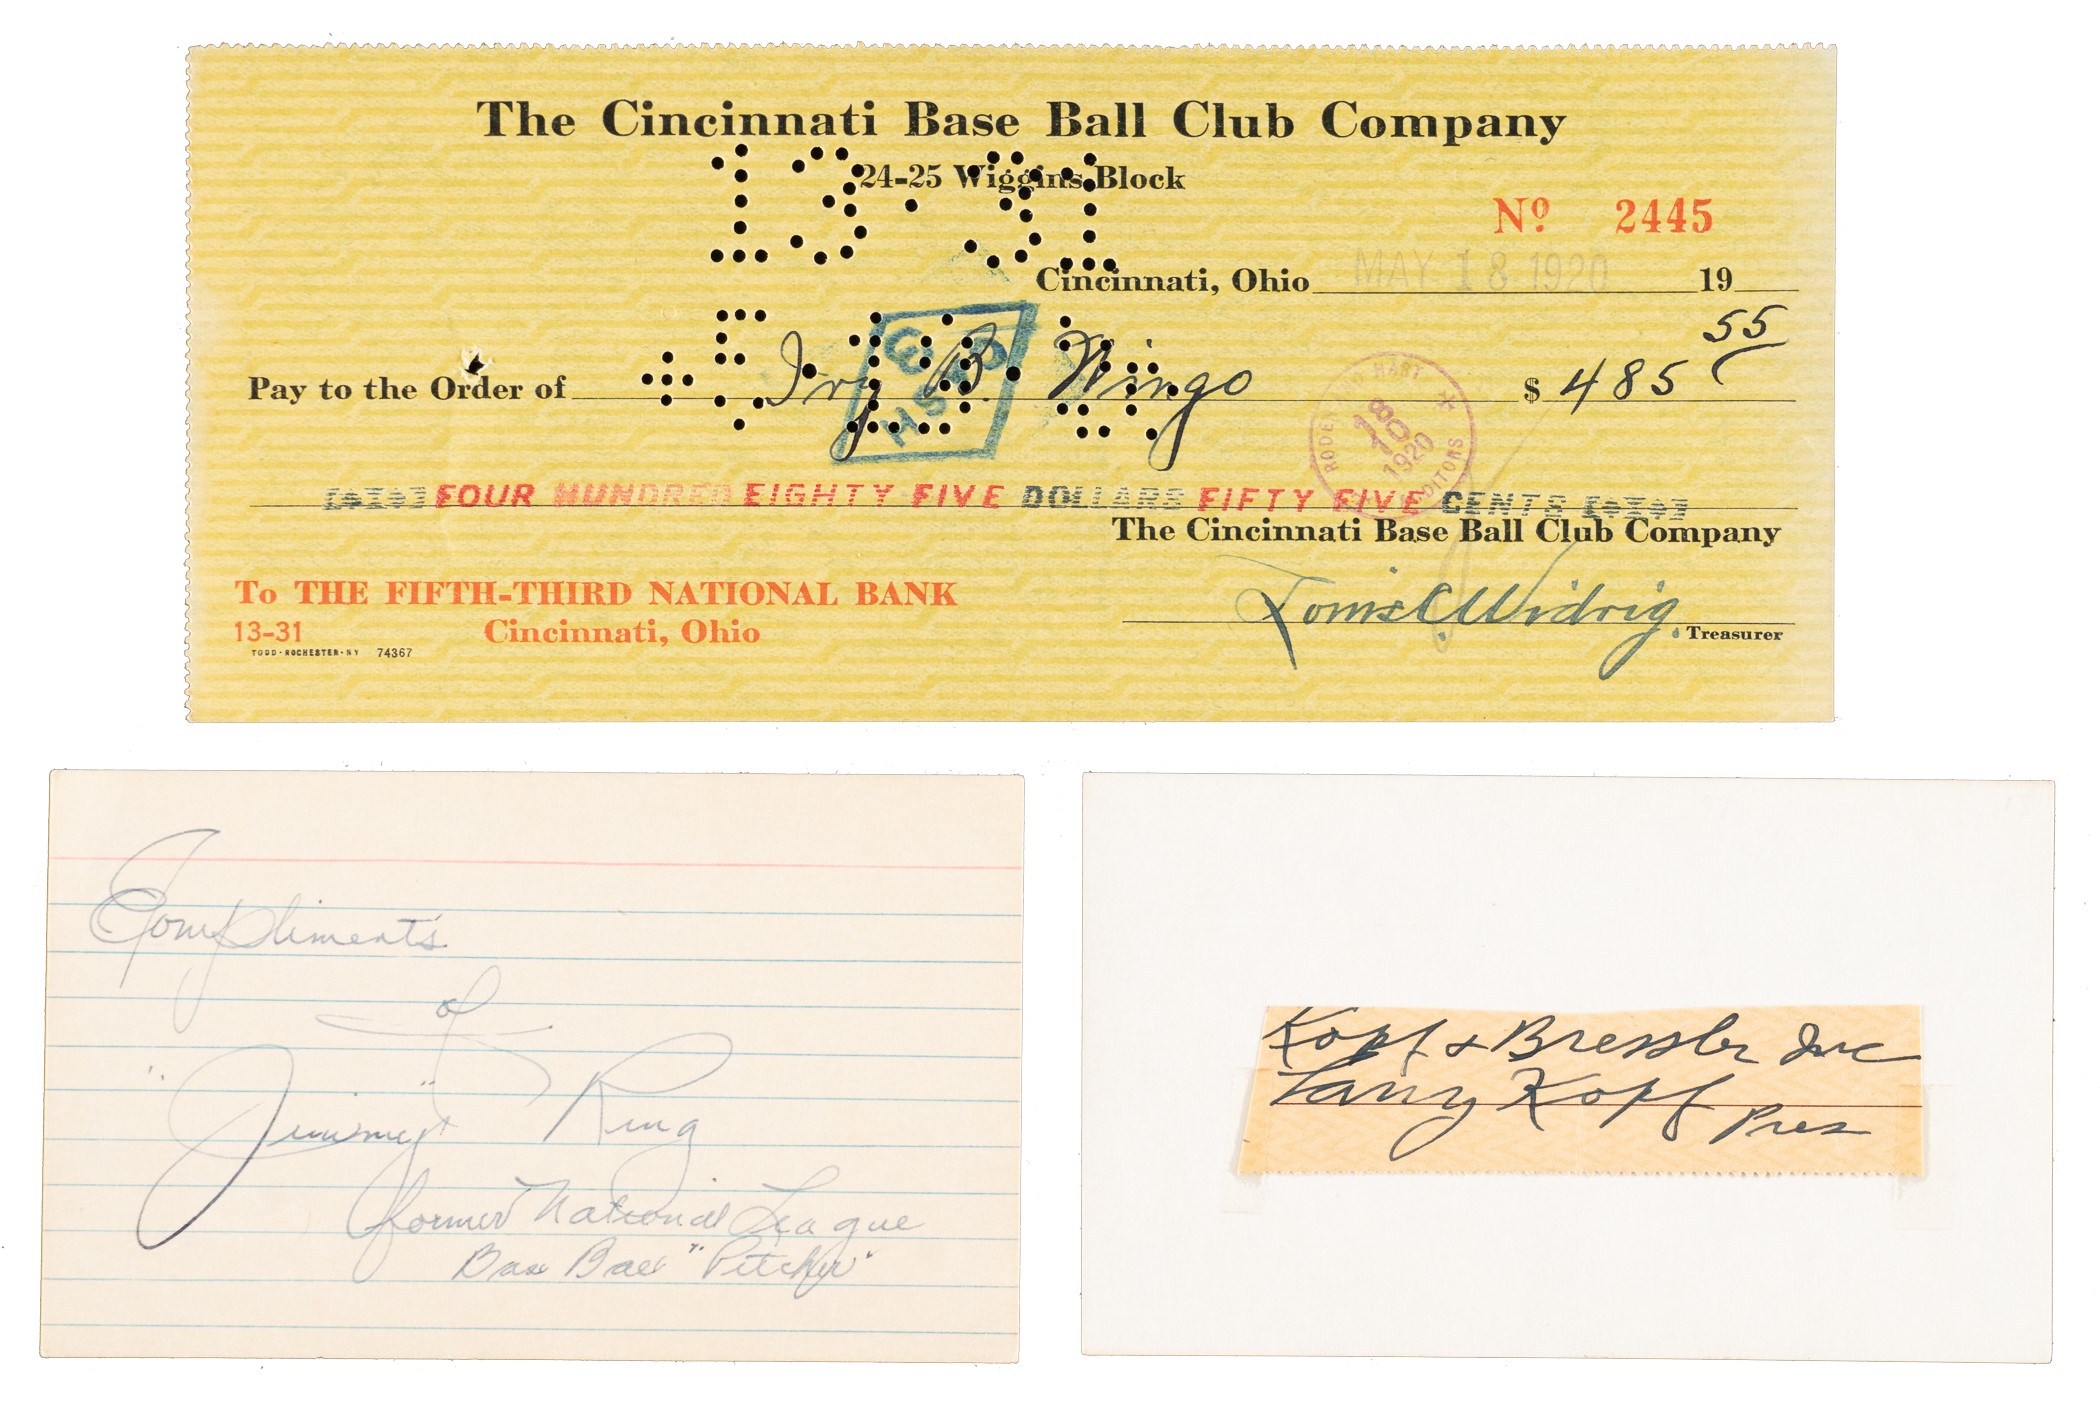 The Cincinnati Base Ball Club Company
24-25 Wiggins Block
Nº 2445
Cincinnati, Ohio MAY 18 1920 19
Pay to the Order of Ivy B. Wingo $ 485 55
FOUR HUNDRED EIGHTY FIVE DOLLARS FIFTY FIVE CENTS
The Cincinnati Base Ball Club Company
To THE FIFTH-THIRD NATIONAL BANK
13-31 Cincinnati, Ohio
Louis C. Widrig. Treasurer
TODD-ROCHESTER-NY 74367
13-31
Compliments
of
"Jimmy" Ring
former National League
Base Ball "Pitcher"
Kopf & Bressler Inc
Larry Kopf
Pres